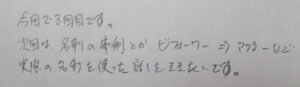 今回で3回目です。
次回は、名刺の事例とか、ビフォーワー ⇒ アフターなど
実際の名刺を使った話しをききたいです。